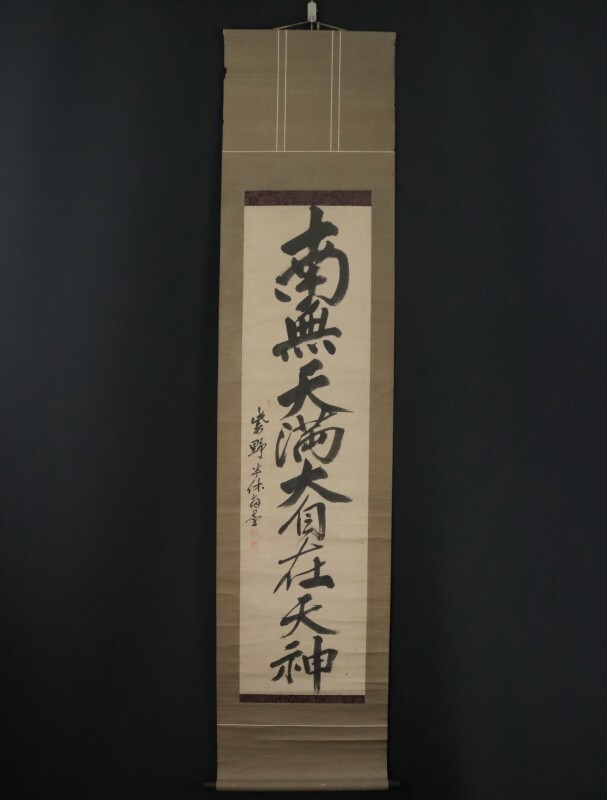 南無天満大自在天神
紫野半休翁墨